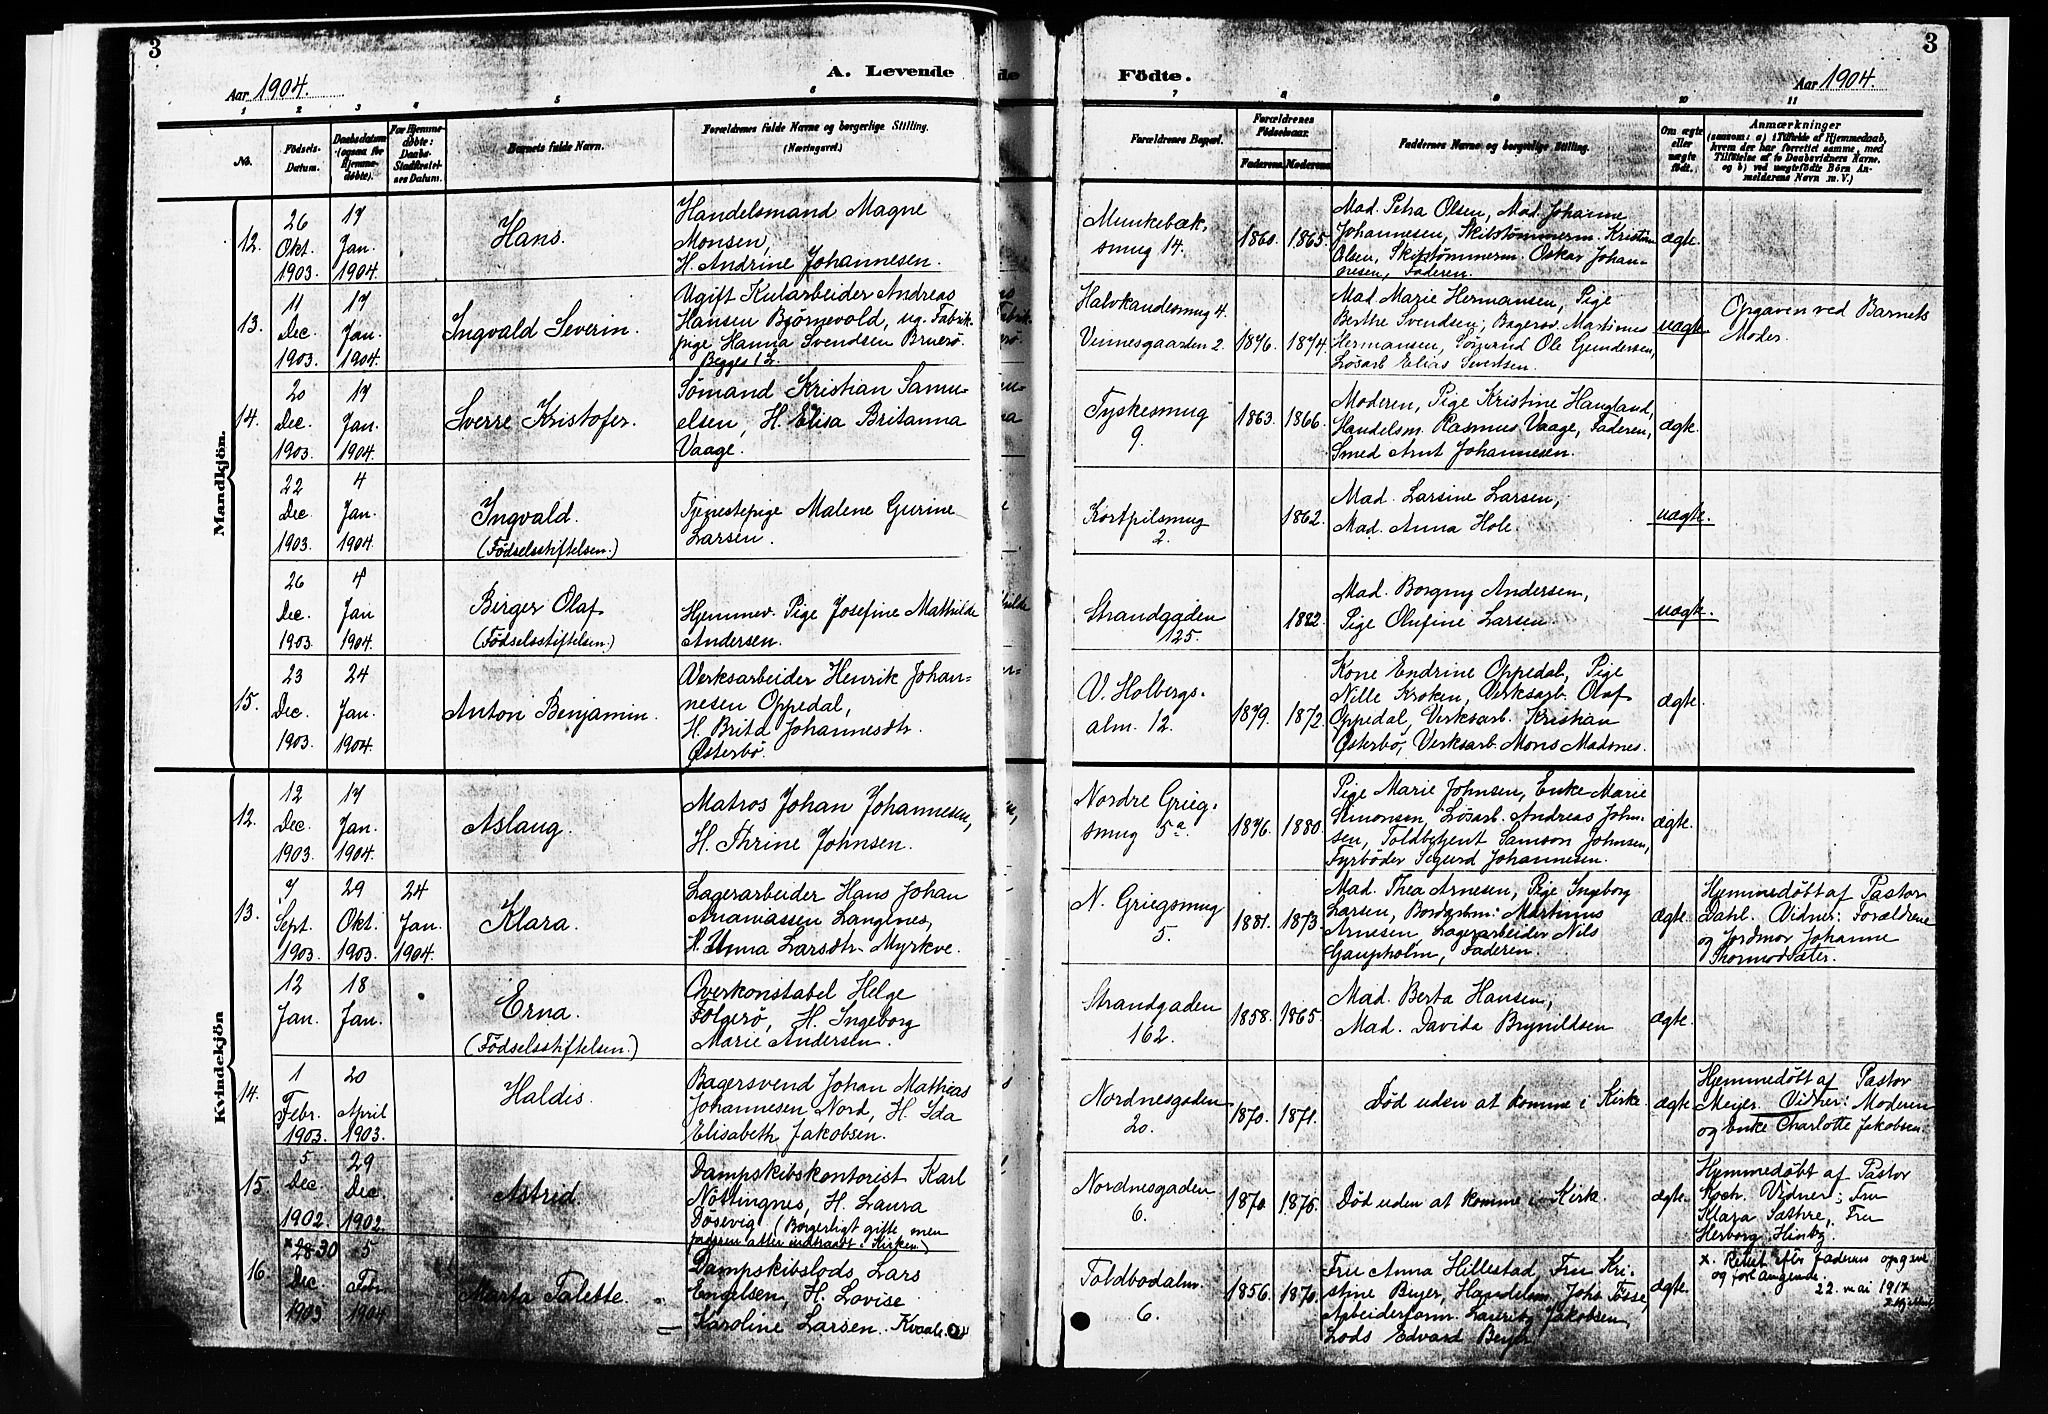 3
A. Levende
Aar 1904.
1 2 3 4 5 6
No.
Födsels-
Datum.
Daabsdatum
(ogsaa for
Hjemme-
döbte).
For Hjemme-
döbte:
Daabs-
Stadfæstel-
ses Datum.
Barnets fulde Navn.
Forældrenes fulde Navne og borgerlige Stilling.
(Næringsvei.)
Mandkjön.
12.
26
Okt.
1903.
17
Jan.
1904.
Hans.
Handelsmand Magne
Monsen,
H. Andrine Johannesen.
13.
11
Dec.
1903.
17
Jan.
1904.
Ingvald Severin.
Ugift Kularbeider Andreas
Hansen Bjørnevold, ug. Fabrik-
pige Hanna Svendsen Bruerø.
Begges 1 L.
14.
20
Dec.
1903.
17
Jan.
1904.
Sverre Kristofer.
Sømand Kristian Samu-
elsen, H. Elisa Britanna
Vaage.
22
Dec.
1903.
4
Jan.
1904.
Ingvald.
(Födselsstiftelsen.)
Tjenestepige Malene Gurine
Larsen.
26
Dec.
1903.
4
Jan
1904.
Birger Olaf
(Födselsstiftelsen.)
Hjemmev. Pige Josefine Mathilde
Andersen.
15.
23
Dec.
1903.
24
Jan.
1904.
Anton Benjamin.
Verksarbeider Henrik Johan-
nesen Oppedal,
H. Brita Johannesdtr.
Østerbø.
Kvindekjön
12.
12
Dec.
1903.
17
Jan.
1904.
Aslaug.
Matros Johan Johannesen,
H. Thrine Johnsen.
13.
7
Sept.
1903.
29
Okt.
1903.
24
Jan.
1904.
Klara.
Lagerarbeider Hans Johan
Ananiassen Langenes,
H. Unna Larsdtr. Myrkve.
12
Jan.
18
Jan.
Erna.
(Födselsstiftelsen.)
Overkonstabel Helge
Folgerø, H. Ingeborg
Marie Andersen.
14.
1
Febr.
1903.
20
April
1903.
Haldis.
Bagersvend Johan Mathias
Johannesen Nord, H. Ida
Elisabeth Jakobsen.
15.
5
Dec.
1902.
29
Dec.
1902.
Astrid.
Dampskibskontorist Karl
Nøttingnes, H. Laura
Døsevig (Borgerligt gifte, men
faderen atter indtraadt i Kirken)
16.
x 28 30
Dec.
1903
5
Febr.
1904
Marta Talette.
Dampskibslods Lars
Engelsen, H. Lovise
Karoline Larsen. Kvaale
3
Födte.
Aar 1904.
7 8 9 10 11
Forældrenes Bopæl.
Forældrenes
Födselsaar.
Faderens. Moderens.
Faddernes Navne og borgerlige Stilling.
Om ægte
eller
uægte
födt.
Anmærkninger
(saasom: a) i Tilfælde af Hjemmedaab,
hvem der har forrettet samme, med
Tilföielse af to Daabsvidners Navne.
og b) ved uægtefödte Börn An-
melderens Navn m. V.)
Munkebæk,
smug 14.
1860. 1865.
Mad. Petra Olsen, Mad. Johanne
Johannesen, Skibstømmerm. Kristian
Olsen, Skibstømmerm. Oskar Johan-
nesen, Faderen.
ægte.
Halvkandesmug 4.
Vinnesgaarden 2.
1876. 1874.
Mad. Marie Hermansen, Pige
Berthe Svendsen, Bagersv. Martinus
Hermansen, Sømand Ole Gundersen,
Løsarb Elias Sivertsen.
uægte
Opgaven ved Barnets
Moder.
Tyskesmug
9.
1863. 1866.
Moderen, Pige Kristine Haugland,
Handelsm. Rasmus Vaage, Faderen,
Smed Arnt Johannesen.
ægte.
Kortpilsmug
2.
1862.
Mad. Larsine Larsen,
Mad. Anna Hole.
uægte.
Strandgaden
125.
1882.
Mad. Borgny Andersen,
Pige Olufine Larsen.
uægte.
V. Holbergs-
alm. 12.
1879. 1872.
Kone Endrine Oppedal, Pige
Nille Kroken, Verksarb. Olaf
Oppedal, Verksarb. Kristian
Østerbø, Verksarb. Mons Madsnes.
ægte.
Nordre Grieg-
smug 5a.
1876. 1880.
Pige Marie Johnsen, Enke Marie
Simonsen, Løsarb. Andreas John-
sen, Toldbetjent Samson Johnsen,
Fyrbøder Sigurd Johannesen.
ægte.
N. Griegsmug
5.
1881. 1873.
Mad. Thea Arnesen, Pige Ingeborg
Larsen, Martinus
Arnesen, Lagerarbeider Nils
Gaupholm, Faderen.
ægte.
Hjemmedøbt af Pastor
Dahl. Vidner: Forældrene
og Jordmor Johanne
Thormodsæter.
Strandgaden
162.
1858. 1865.
Mad. Berta Hansen,
Mad. Davida Brynildsen
ægte.
Nordnesgaden
20.
1870. 1871.
Død uden at komme i Kirke.
ægte
Hjemmedøbt af Pastor
Meyer. Vidner: Moderen
og Enke Charlotte Jakobsen.
Nordnesgaden
6.
1870. 1876.
Død uden at komme i Kirk.
ægte.
Hjemmedøbt af Pastor
Koch. Vidner: Fru
Klara Sæthre, Fru
Herborg Hinby.
Toldbodalm.
6.
1856. 1870.
Fru Anna Hillestad, Fru Kri-
stine Beyer, Handelsm. Johs Fosse,
Arbeiderform. Lauritz Jakobsen,
Lods Edvard Beyer
ægte.
x. Rettet efter faderens opgave
og forlangende.
22. mai 1917